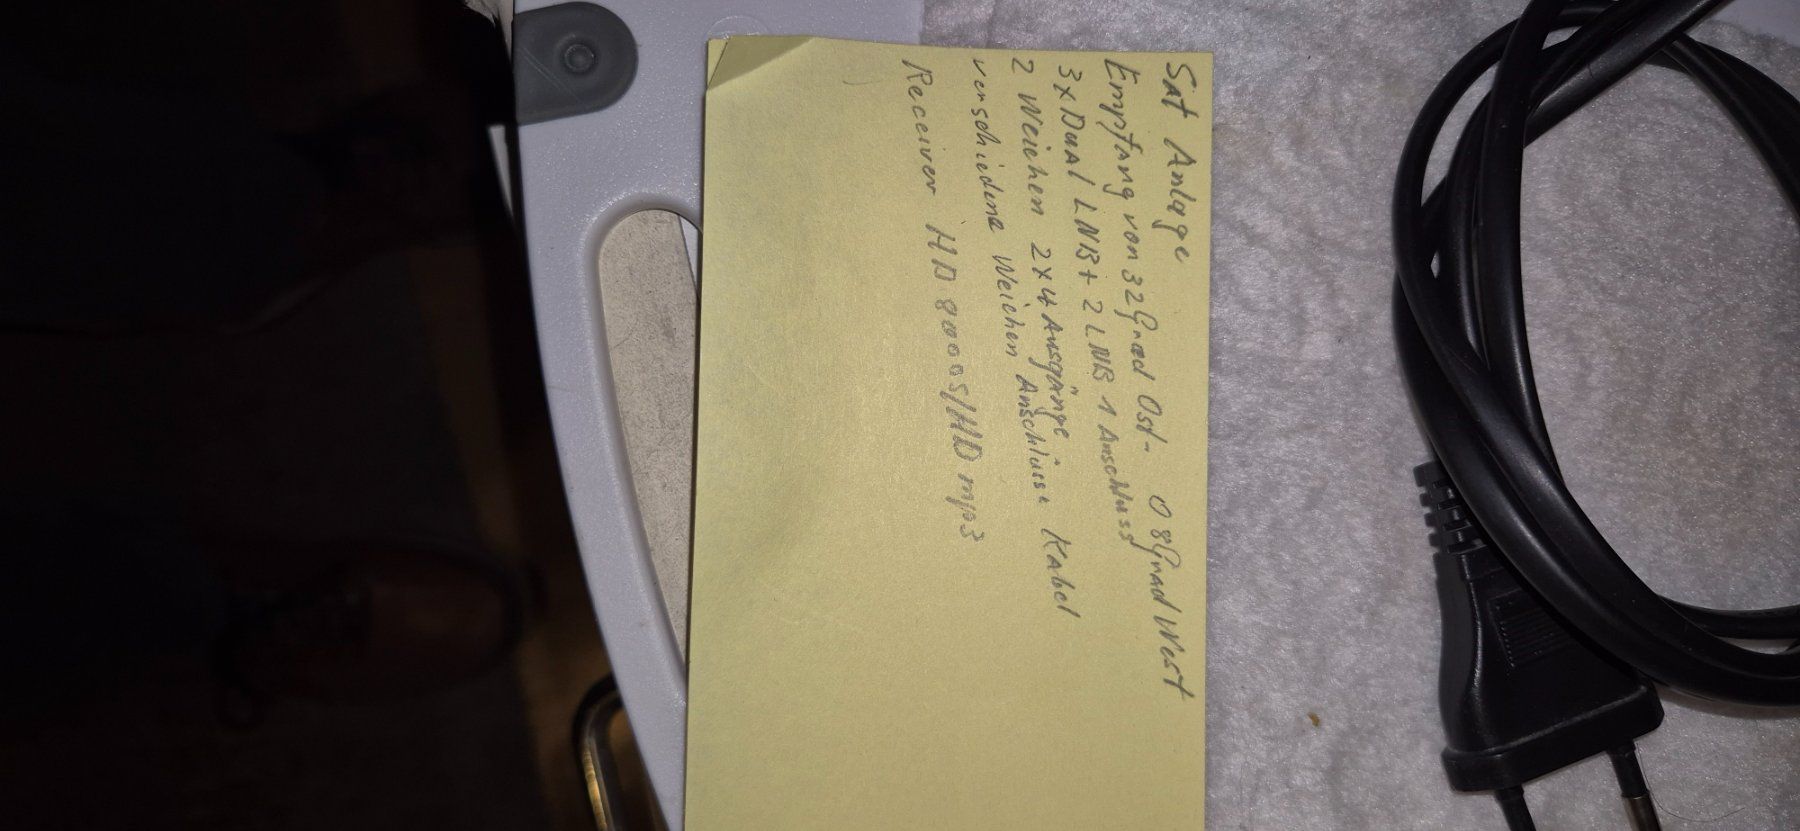 Sat Anlage
Empfang von 32Grad Ost- 08Grad West
3xDual LNB+ 2LNB 1 Anschluss
2 Weichen 2x4 Ausgänge
verschiedene Weichen Anschlüsse Kabel
Receiver HD 8000S/HD mp3